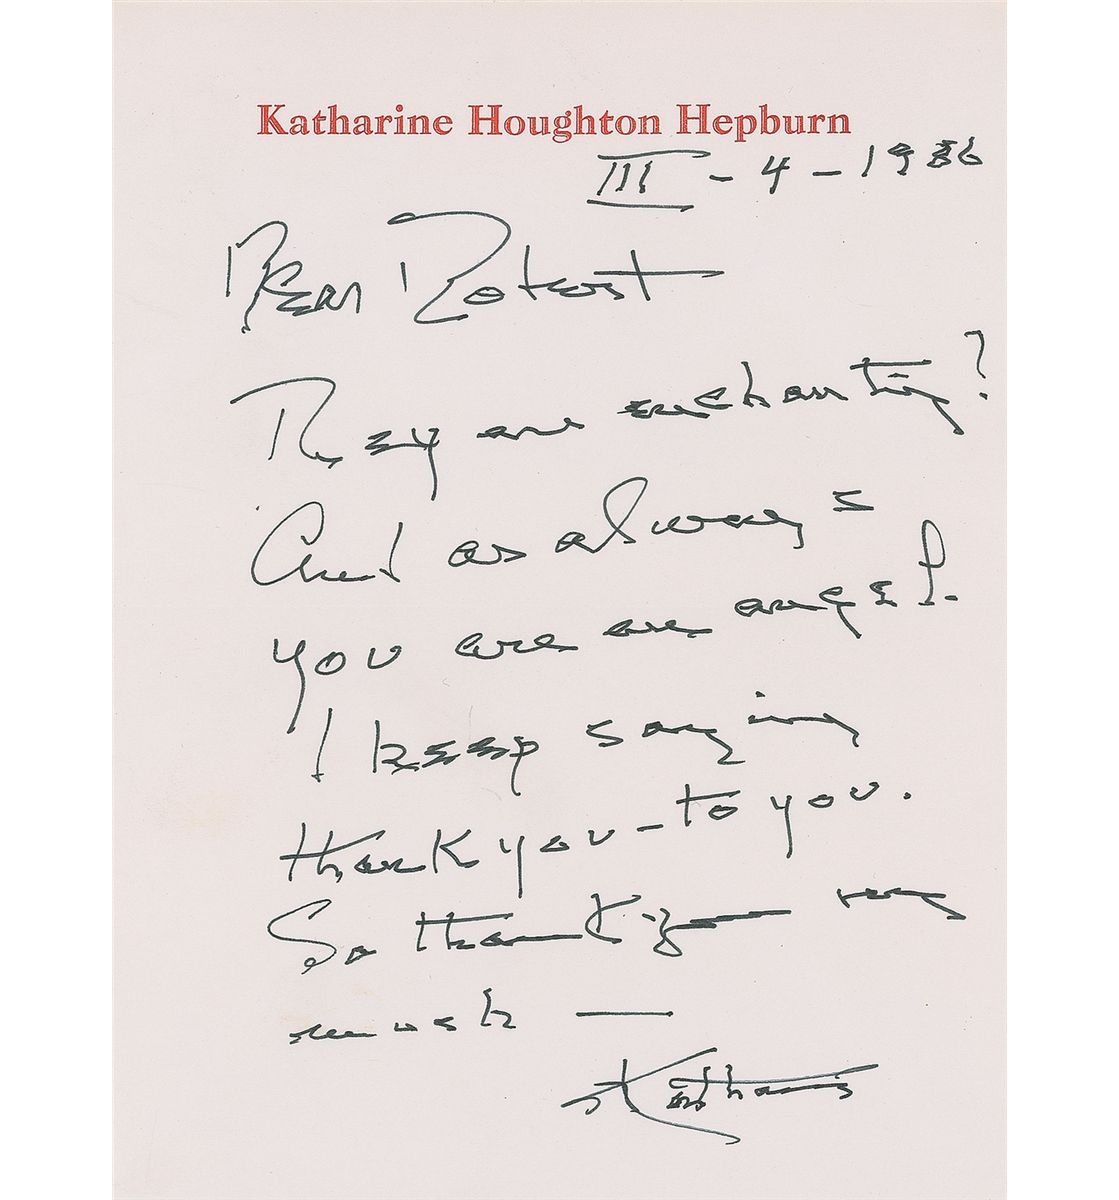 Katharine Houghton Hepburn
III - 4 - 1986
Dear Robert
They are enchanting?
And as always
you are an angel.
I keep saying
thank you - to you.
So thank you very
much —
Katharine